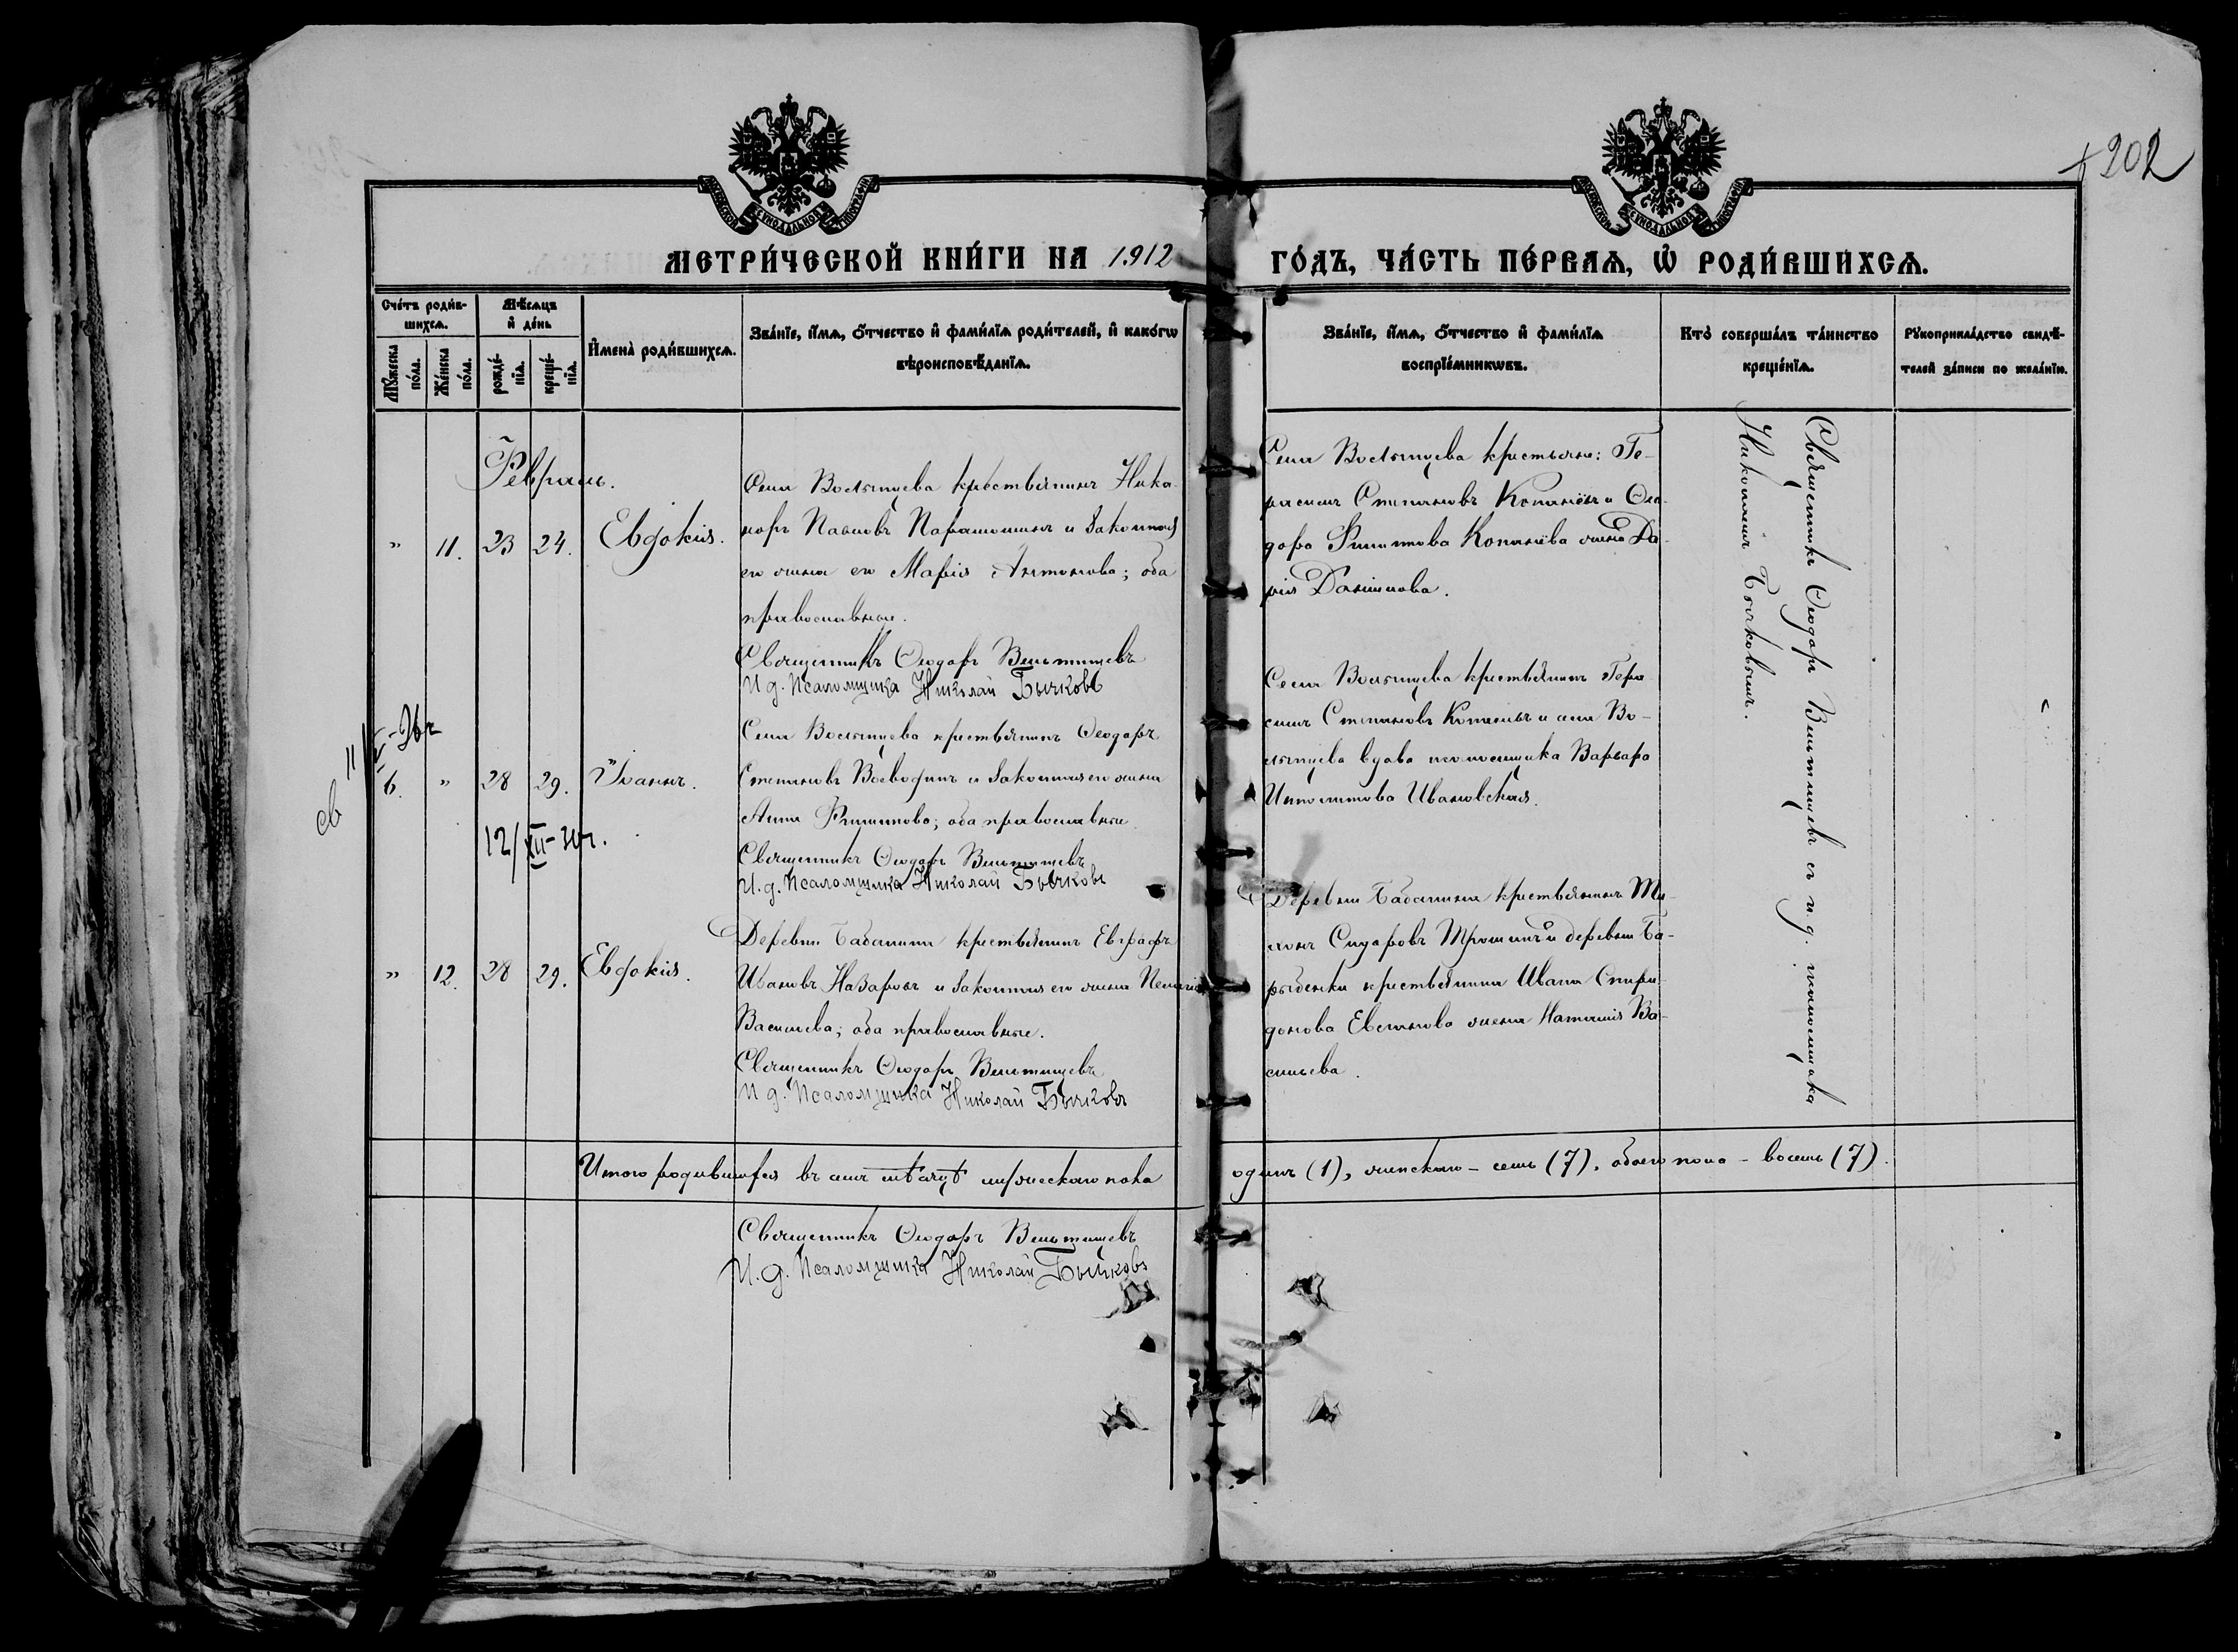 202
МЕТРИ́ЧЕСКОЙ КНИ́ГИ НА 1912
ГО́ДЪ, ЧА́СТЬ ПЕ́РВАѦ, Ѡ РОДИ́ВШИХСѦ.
Сче́тъ роди́в-
шихсѧ.
Мѣ́сѧцъ
и де́нь
Мꙋ́жеска
по́ла.
Же́нска
по́ла.
рожде́-
нїѧ.
креще́-
нїѧ.
Имена̀ роди́вшихсѧ.
Зва́нїе, и́мѧ, о́тчество и фами́лїѧ роди́телей, и како́гѡ
вѣроисповѣ́данїѧ.
Зва́нїе, и́мѧ, о́тчество и фами́лїѧ
воспрїе́мникѡвъ.
Кто̀ соверша́лъ та́инство
креще́нїѧ.
Рꙋкоприкла́дство свидѣ́-
телей за́писи по жела́нїю.
Февраль.
" 11. 23 24. Евдокія.
Села крестьянинъ Ника-
норъ Павловъ и законная
его жена его Марія Антонова; оба
православные.
Священникъ Ѳеодоръ Вельтищевъ
И.д. Псаломщика Николай Бычковъ
Села крестьяне: Ге-
расимъ Степановъ и Ѳео-
дора Филиппова жена Да-
рія Даниилова.
Священникъ Ѳеодоръ Вельтищевъ съ и. д. псаломщика
Николаемъ Бычковымъ.
6. " 28 29. Іоаннъ.
12/XII-
Села крестьянинъ Ѳеодоръ
Степановъ Воеводинъ и законная его жена
Анна Филиппова; оба православные.
Священникъ Ѳеодоръ Вельтищевъ
И.д. Псаломщика Николай Бычковъ
Села крестьянинъ Гера-
симъ Степановъ и села
вдова псаломщика Варвара
Ипполитова Ивановская.
" 12. 28 29. Евдокія.
Деревни крестьянинъ Евграфъ
Ивановъ Назаровъ и законная его жена Пелагія
Васильева; оба православные.
Священникъ Ѳеодоръ Вельтищевъ
И.д. Псаломщика Николай Бычковъ
Деревни крестьянинъ
Сидоровъ Трошинъ и деревни Ба-
крестьянина Ивана Спири-
донова жена Наталія Ва-
сильева.
Итого родившихся въ семъ мѣсяцѣ мужескаго пола
одинъ (1), женскаго – семь (7), обоего пола – восемь (7).
Священникъ Ѳеодоръ Вельтищевъ
И.д. Псаломщика Николай Бычковъ